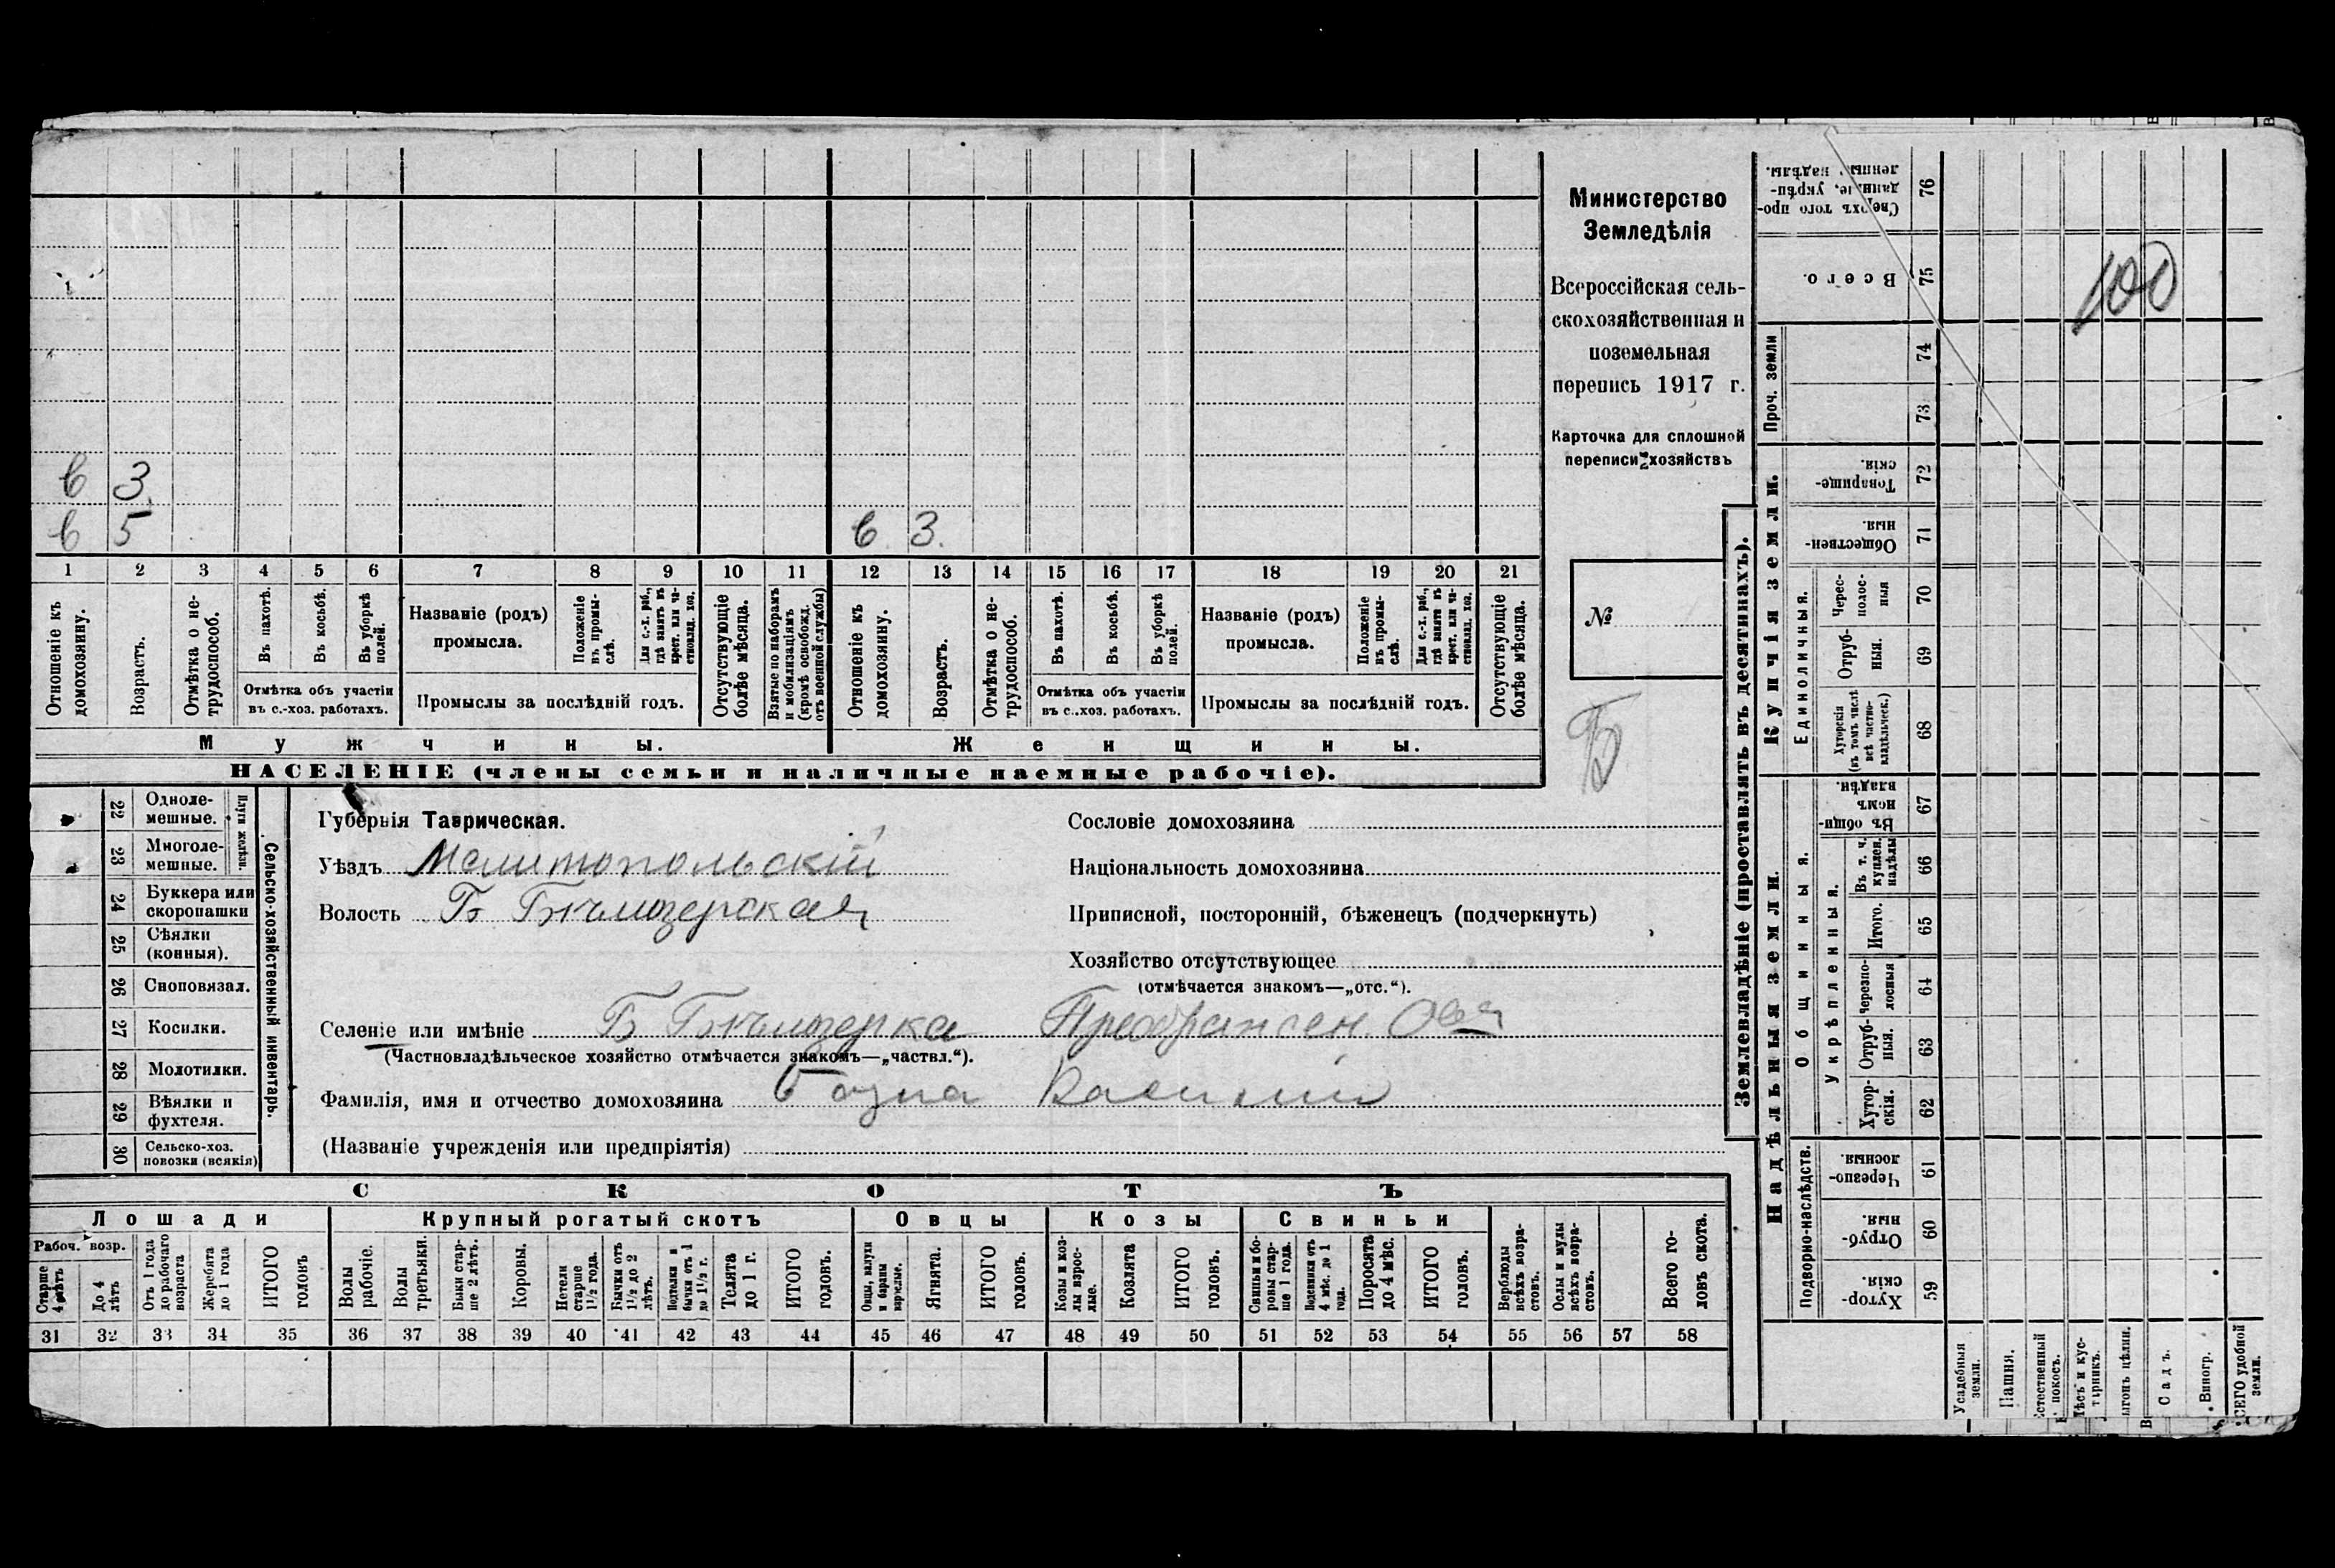 Министерство
Земледѣлія
Всероссійская сель-
скохозяйственная и
поземельная
перепись 1917 г.
Карточка для сплошной
переписи хозяйствъ
№
Б
в 3
в 5
в 3.
1 2 3 4 5 6 7 8 9 10 11 12 13 14 15 16 17 18 19 20 21
Отношеніе къ домохозяину.
Возрастъ.
Отмѣтка о не-трудоспособ.
Въ пахотѣ.
Въ косьбѣ.
Въ уборкѣ полей.
Отмѣтка объ участіи
въ с.-хоз. работахъ.
Названіе (родъ)
промысла.
Положеніе въ промы-слѣ.
Для с.-х. раб., гдѣ занятъ въ крест. или ча-стновлад. хоз.
Промыслы за послѣдній годъ.
Отсутствующіе болѣе мѣсяца.
Взятые по наборамъ и мобилизаціямъ (кромѣ освобожд. отъ военной службы)
Отношеніе къ домохозяину.
Возрастъ.
Отмѣтка о не-трудоспособ.
Въ пахотѣ.
Въ косьбѣ.
Въ уборкѣ полей.
Отмѣтка объ участіи
въ с..хоз. работахъ.
Названіе (родъ)
промысла.
Положеніе въ промы-слѣ.
Для с.-х. раб., гдѣ занятъ въ крест. или ча-стновлад. хоз.
Промыслы за послѣдній годъ.
Отсутствующіе болѣе мѣсяца.
Мужчины. Женщины.
НАСЕЛЕНІЕ (члены семьи и наличные наемные рабочіе).
Сельско-хозяйственный инвентарь.
Плуги желѣзн.
22 Одноле-мешные.
23 Многоле-мешные.
24 Буккера или скоропашки
25 Сѣялки (конныя).
26 Сноповязал.
27 Косилки.
28 Молотилки.
29 Вѣялки и фухтеля.
30 Сельско-хоз. повозки (всякія)
Губернія Таврическая.
Уѣздъ Мелитопольскій
Волость Б Бѣлозерская
Селеніе или имѣніе Б Бѣлозерка Преображен.
(Частновладѣльческое хозяйство отмѣчается знакомъ—„частвл.“).
Фамилія, имя и отчество домохозяина Василій
(Названіе учрежденія или предпріятія)
Сословіе домохозяина
Національность домохозяина
Приписной, посторонній, бѣженецъ (подчеркнуть)
Хозяйство отсутствующее
(отмѣчается знакомъ—„отс.“).
СКОТЪ
Лошади Крупный рогатый скотъ Овцы Козы Свиньи
Рабоч. возр.
Старше 4 лѣтъ
До 4 лѣтъ
Отъ 1 года до рабочаго возраста
Жеребята до 1 года
ИТОГО головъ
Волы рабочіе.
Волы третьяки.
Быки стар-ше 2 лѣтъ.
Коровы.
Нетели старше 1½ года.
Бычки отъ 1½ до 2 лѣтъ.
Подтелки и бычки отъ 1 до 1½ г.
Телята до 1 г.
ИТОГО головъ.
Овцы, валухи и бараны взрослые.
Ягнята.
ИТОГО головъ.
Козы и коз-лы взрос-лые.
Козлята
ИТОГО головъ.
Свиньи и бо-ровы стар-ше 1 года.
Подсвинки отъ 4 мѣс. до 1 года.
Поросята до 4 мѣс.
ИТОГО головъ.
Верблюды всѣхъ возра-стовъ.
Ослы и мулы всѣхъ возра-стовъ.
Всего го-ловъ скота.
31 32 33 34 35 36 37 38 39 40 41 42 43 44 45 46 47 48 49 50 51 52 53 54 55 56 57 58
Землевладѣніе (проставлять въ десятинахъ).
Надѣльныя земли.
Купчія земли.
Проч. земли
Подворно-наслѣдств.
Общинныя.
Укрѣпленныя.
Единоличныя.
59 Хутор-скія.
60 Отруб-ныя.
61 Черезпо-лосныя.
62 Хутор-скія.
63 Отруб-ныя.
64 Черезпо-лосныя
65 Итого.
66 Въ т. ч. куплен. надѣлы
67 Въ общин-номъ владѣн.
68 Хуторскія (въ томъ числѣ всѣ частно-владѣльческ.)
69 Отруб-ныя.
70 Черес-полос-ныя
71 Обществен-ныя.
72 Товарище-скія.
73
74
75 Всего.
76 Сверхъ того про-данные, укрѣп-ленные надѣлы.
100
Усадебныя земли.
Пашня.
Естественный покосъ.
Лѣсъ и кус-тарникъ.
Выгонъ цѣлин.
Садъ.
Виногр.
ВСЕГО удобной земли.